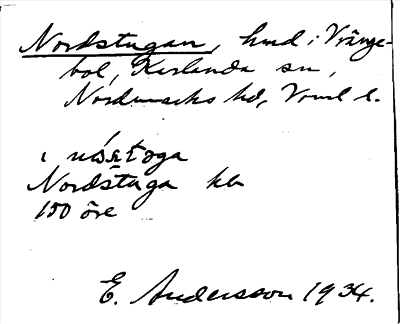 Nordstugan, hmd i Vränge-
bol, Karlanda sn,
Nordmarks hd, Vrml l.
i
Nordstuga kb
150 öre
E. Andersson 1934.